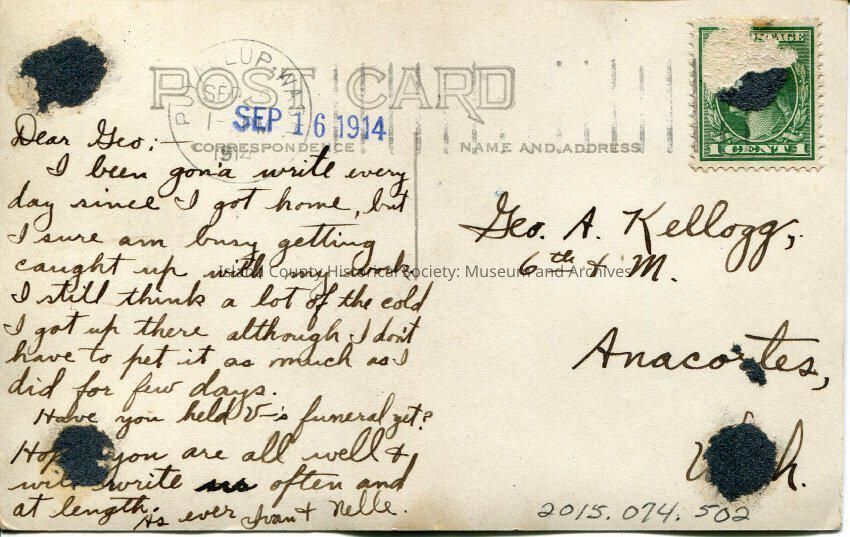 POST CARD
PU LUP, WA
SEP
1-
1914
SEP 16 1914
CORRESPONDENCE
NAME AND ADDRESS
AGE
1 CENT 1
Dear Geo:-
I been gon'a write every
day since I got home, but
I sure am busy getting
caught up with my work.
I still think a lot of the cold
I got up there although I don't
have to pet it as much as I
did for few days.
Have you held V-'s funeral yet?
Hop you are all well &
will write us often and
at length.
As ever Ivan & Nelle.
Geo. A. Kellogg,
6th & M.
Anacortes,
W h.
Island County Historical Society: Museum and Archives
2015.074.502